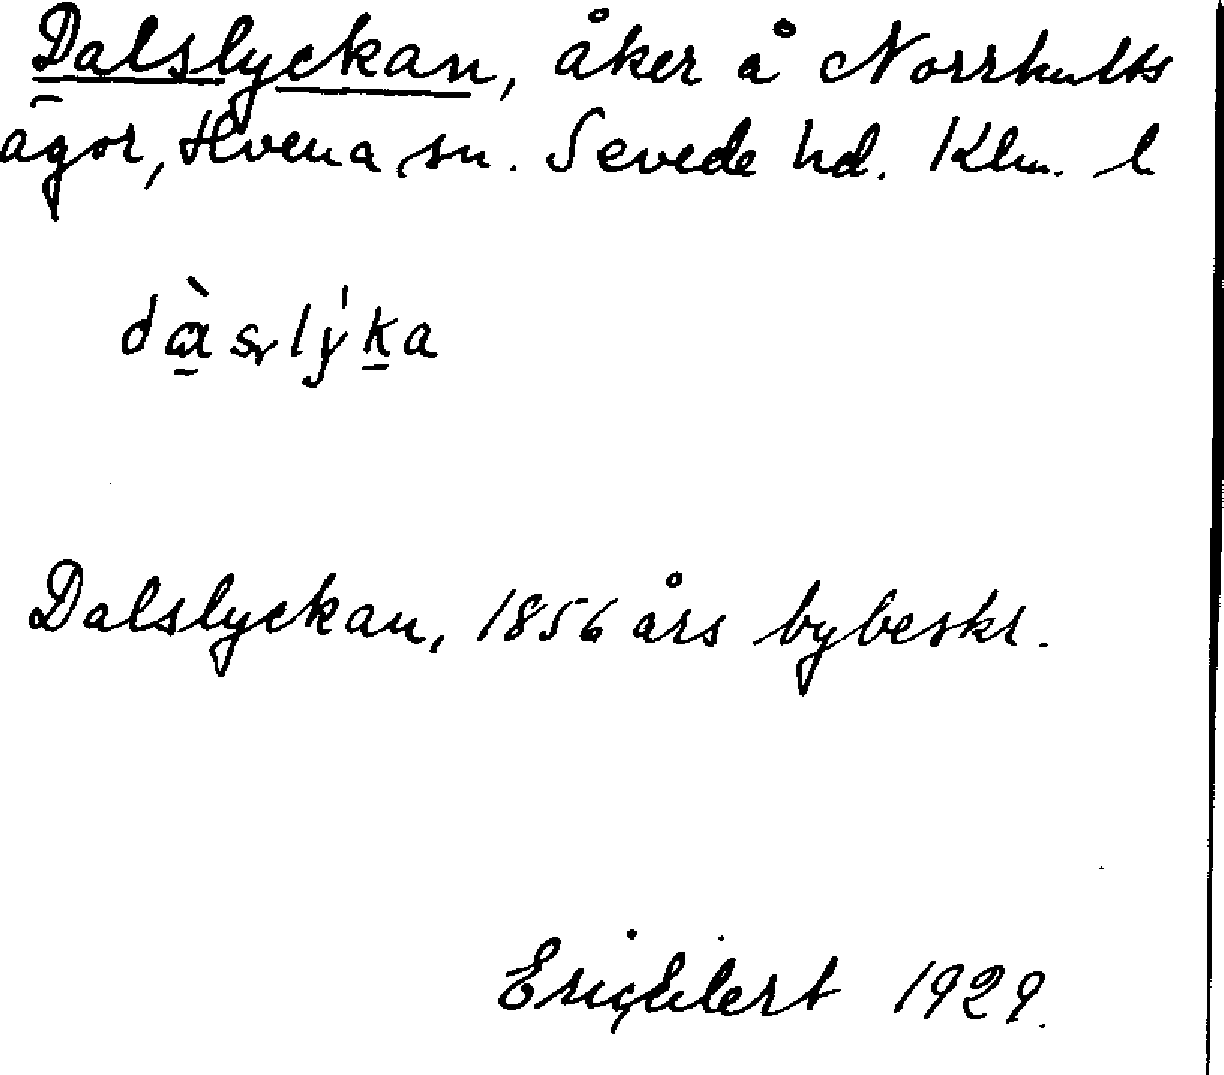 Dalslyckan, åker å Norrhults
ägor, Hvena sn. Sevede hd. Klm. l
dàslýka
Dalslyckan, 1856 års bybeskr.
Eric Eilert 1929.